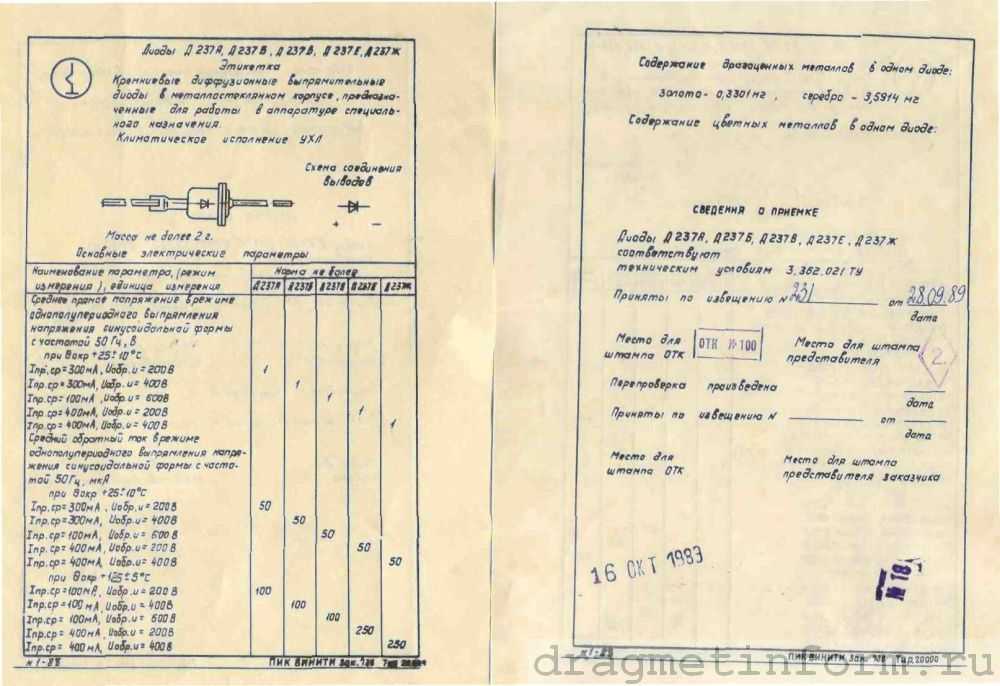 Диоды Д237А, Д237Б, Д237В, Д237Е, Д237Ж
Этикетка
Кремниевые диффузионные выпрямительные
диоды в металлостеклянном корпусе, предназна-
ченные для работы в аппаратуре специаль-
ного назначения.
Климатическое исполнение УХЛ
Схема соединения
выводов
+ −
Масса не более 2 г.
Основные электрические параметры
Наименование параметра, (режим
измерения), единица измерения
Норма не более
Д237А Д237Б Д237В Д237Е Д237Ж
Среднее прямое напряжение в режиме
однополупериодного выпрямления
напряжения синусоидальной формы
с частотой 50 Гц, В
при θокр +25±10°С
Iпр.ср=300мА, Uобр.и=200В 1
Iпр.ср=300мА, Uобр.и=400В 1
Iпр.ср=100мА, Uобр.и=600В 1
Iпр.ср=400мА, Uобр.и=200В 1
Iпр.ср=400мА, Uобр.и=400В 1
Средний обратный ток в режиме
однополупериодного выпрямления напря-
жения синусоидальной формы с часто-
той 50Гц, мкА
при θокр +25±10°С
Iпр.ср=300мА, Uобр.и=200В 50
Iпр.ср=300мА, Uобр.и=400В 50
Iпр.ср=100мА, Uобр.и=600В 50
Iпр.ср=400мА, Uобр.и=200В 50
Iпр.ср=400мА, Uобр.и=400В 50
при θокр +125±5°С
Iпр.ср=100мА, Uобр.и=200В 100
Iпр.ср=100мА, Uобр.и=400В 100
Iпр.ср=100мА, Uобр.и=600В 100
Iпр.ср=400мА, Uобр.и=200В 250
Iпр.ср=400мА, Uобр.и=400В 250
н1-88 ПИК ВИНИТИ Зак. Тир 20000
Содержание драгоценных металлов в одном диоде:
золото - 0,3301мг, серебро - 3,5914 мг
Содержание цветных металлов в одном диоде:
СВЕДЕНИЯ О ПРИЕМКЕ
Диоды Д237А, Д237Б, Д237В, Д237Е, Д237Ж
соответствуют
техническим условиям 3.362.021 ТУ
Приняты по извещению № 231 от 28.09.89
дата
Место для
штампа ОТК
ОТК №100
Место для штампа
представителя
2
Перепроверка произведена
дата
Приняты по извещению № от
дата
Место для
штампа ОТК
Место для штампа
представителя заказчика
16 ОКТ 1989
№ 18
н1-88 ПИК ВИНИТИ Зак. Тир 20000
dragmetinform.ru